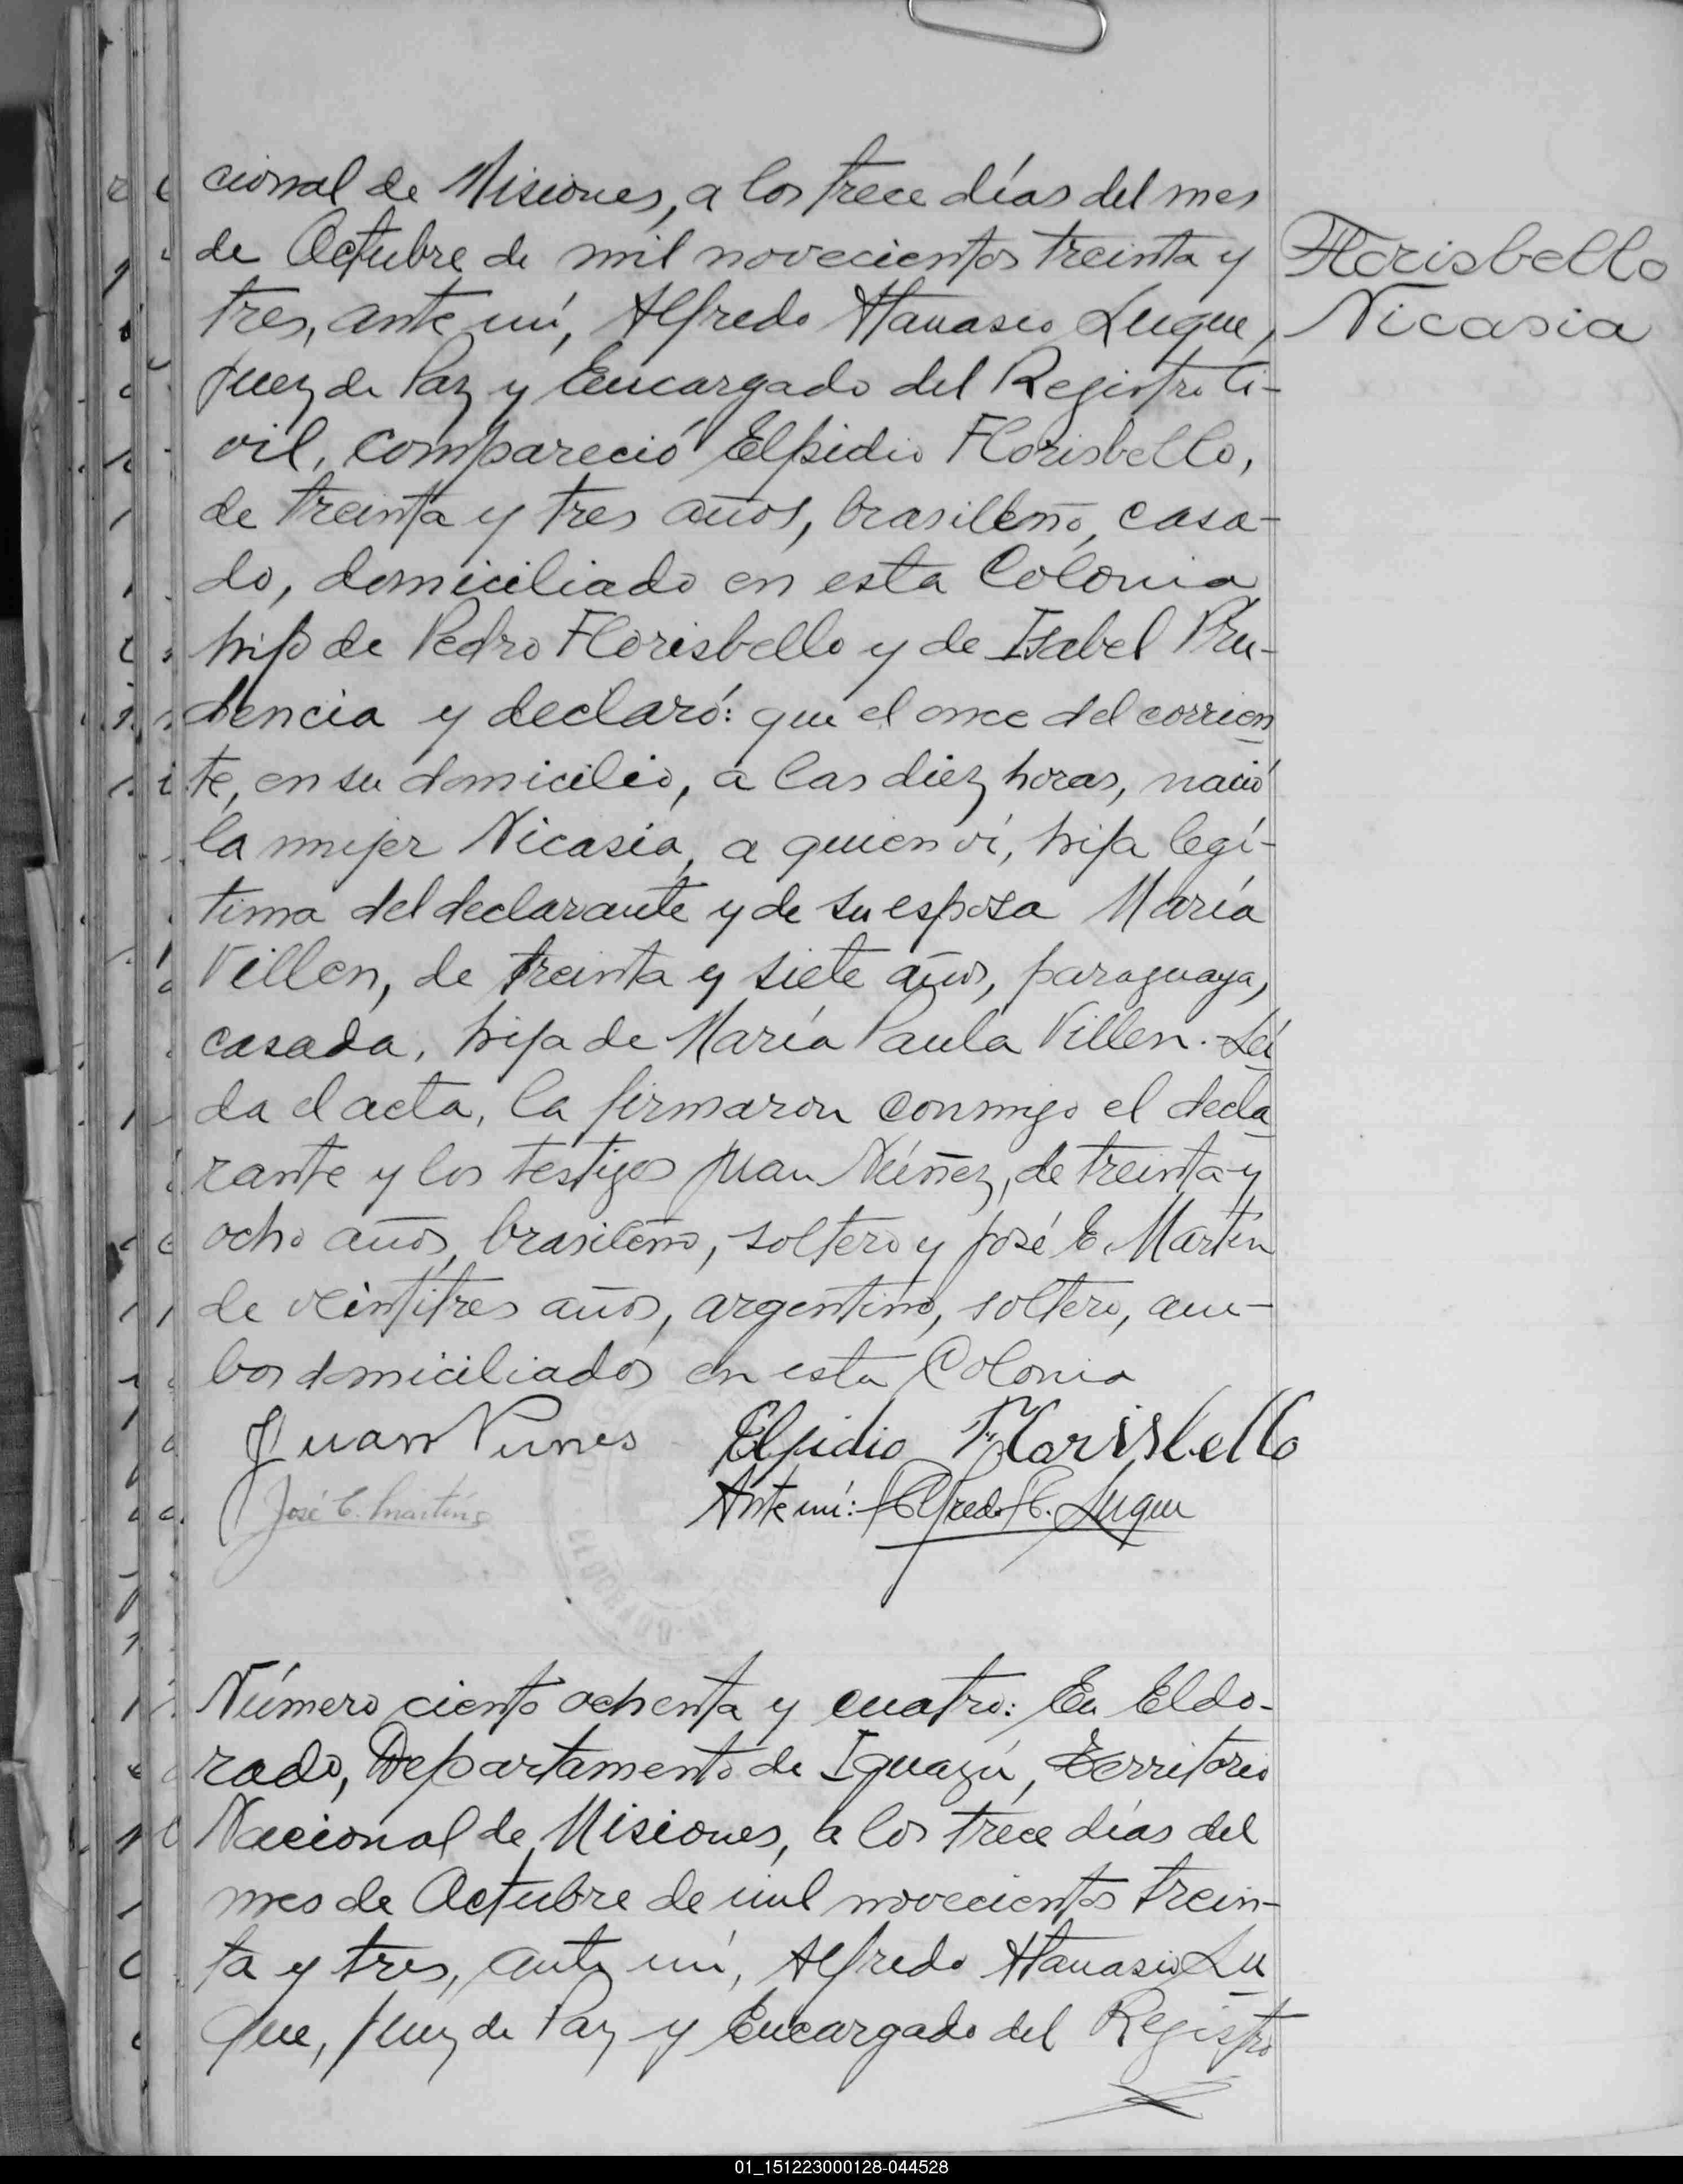 cional de Misiones, a los trece días del mes
de Octubre de mil novecientos treinta y
tres, ante mí, Alfredo Atanasio Luque,
Juez de Paz y Encargado del Registro Ci-
vil, compareció Elpidio Florisbello,
de treinta y tres años, brasileño, casa-
do, domiciliado en esta Colonia,
hijo de Pedro Florisbello y de Isabel Pru-
dencia y declaró: que el once del corrien
te, en su domicilio, a las diez horas, nació
la mujer Nicasia, a quien ví, hija legí-
tima del declarante y de su esposa María
Villen, de treinta y siete años, paraguaya,
casada, hija de María Paula Villen. Leí
da el acta, la firmaron conmigo el decla
rante y los testigos Juan Núñez, de treinta y
ocho años, brasileño, soltero y José E. Martin
de veintitres años, argentino, soltero, am-
bos domiciliados en esta Colonia
Juan Nunes Elpidio Florisbello
José E. Martins Ante mí: Alfredo A. Luque
Número ciento ochenta y cuatro: En Eldo-
rado, Departamento de Iguazú, Territorio
Nacional de Misiones, a los trece días del
mes de Octubre de mil novecientos trein-
ta y tres, ante mí, Alfredo Atanasio Lu
que, Juez de Paz y Encargado del Registro
Florisbello
Nicasia
01_151223000128-044528